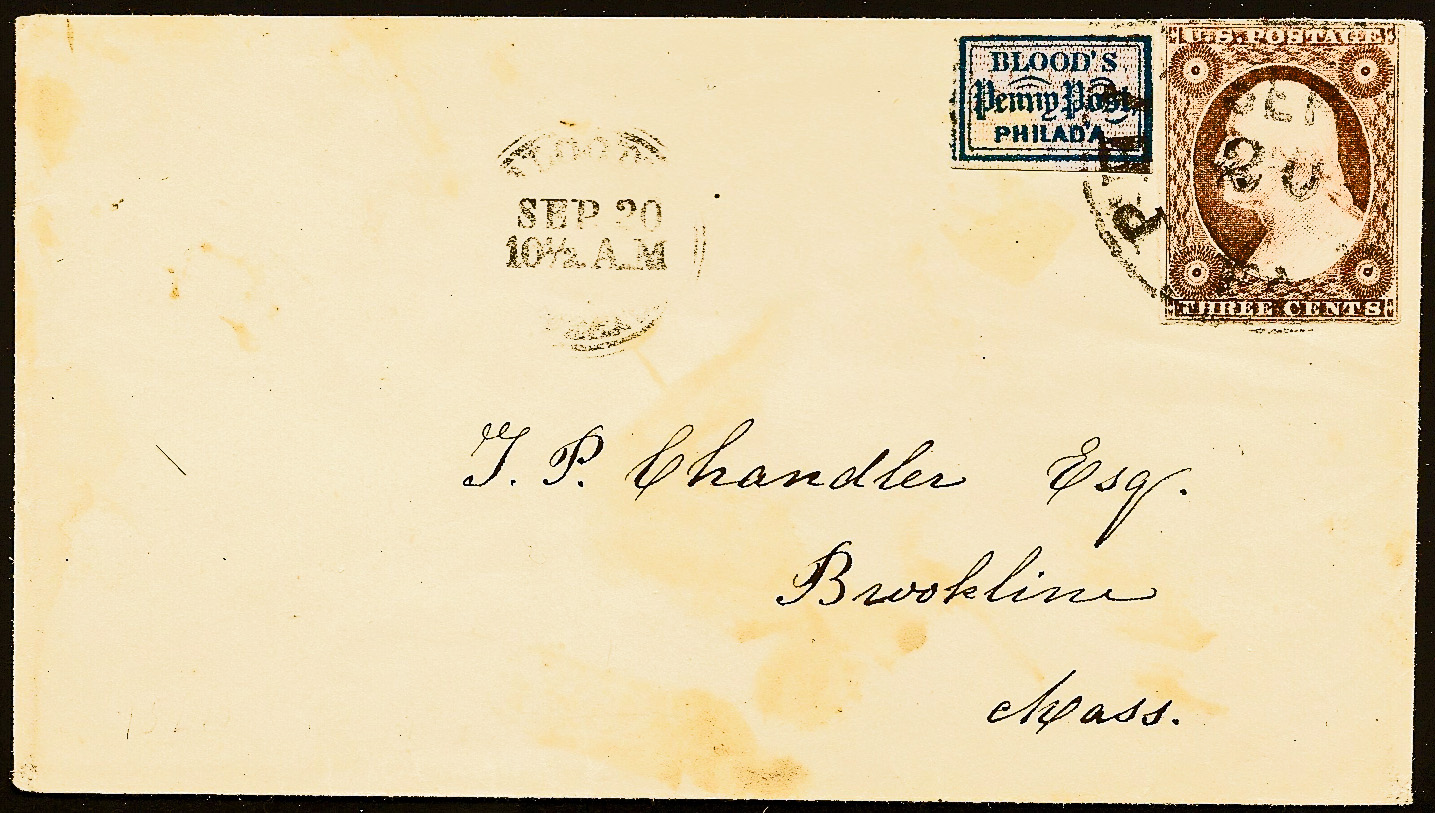 BLOOD'S
Penny Post,
PHILAD'A
U.S. POSTAGE
SEP
20
THREE CENTS
SEP. 20
10½ A.M
T. P. Chandler Esq.
Brookline
Mass.